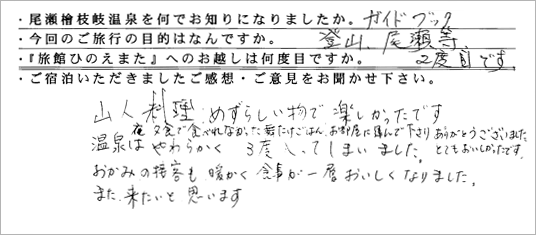 ・尾瀬檜枝岐温泉を何でお知りになりましたか。ガイドブック
・今回のご旅行の目的はなんですか。登山、尾瀬等
・『旅館ひのえまた』へのお越しは何度目ですか。2度目です
・ご宿泊いただきましたご感想・ご意見をお聞かせ下さい。
山人料理 めずらしい物で楽しかったです
夜夕食で食べれなかった舞たけごはん、お部屋に運んで下さりありがとうございました
温泉はやわらかく 3度入ってしまいました。とてもおいしかったです。
おかみの接客も暖かく食事が一層おいしくなりました。
また、来たいと思います